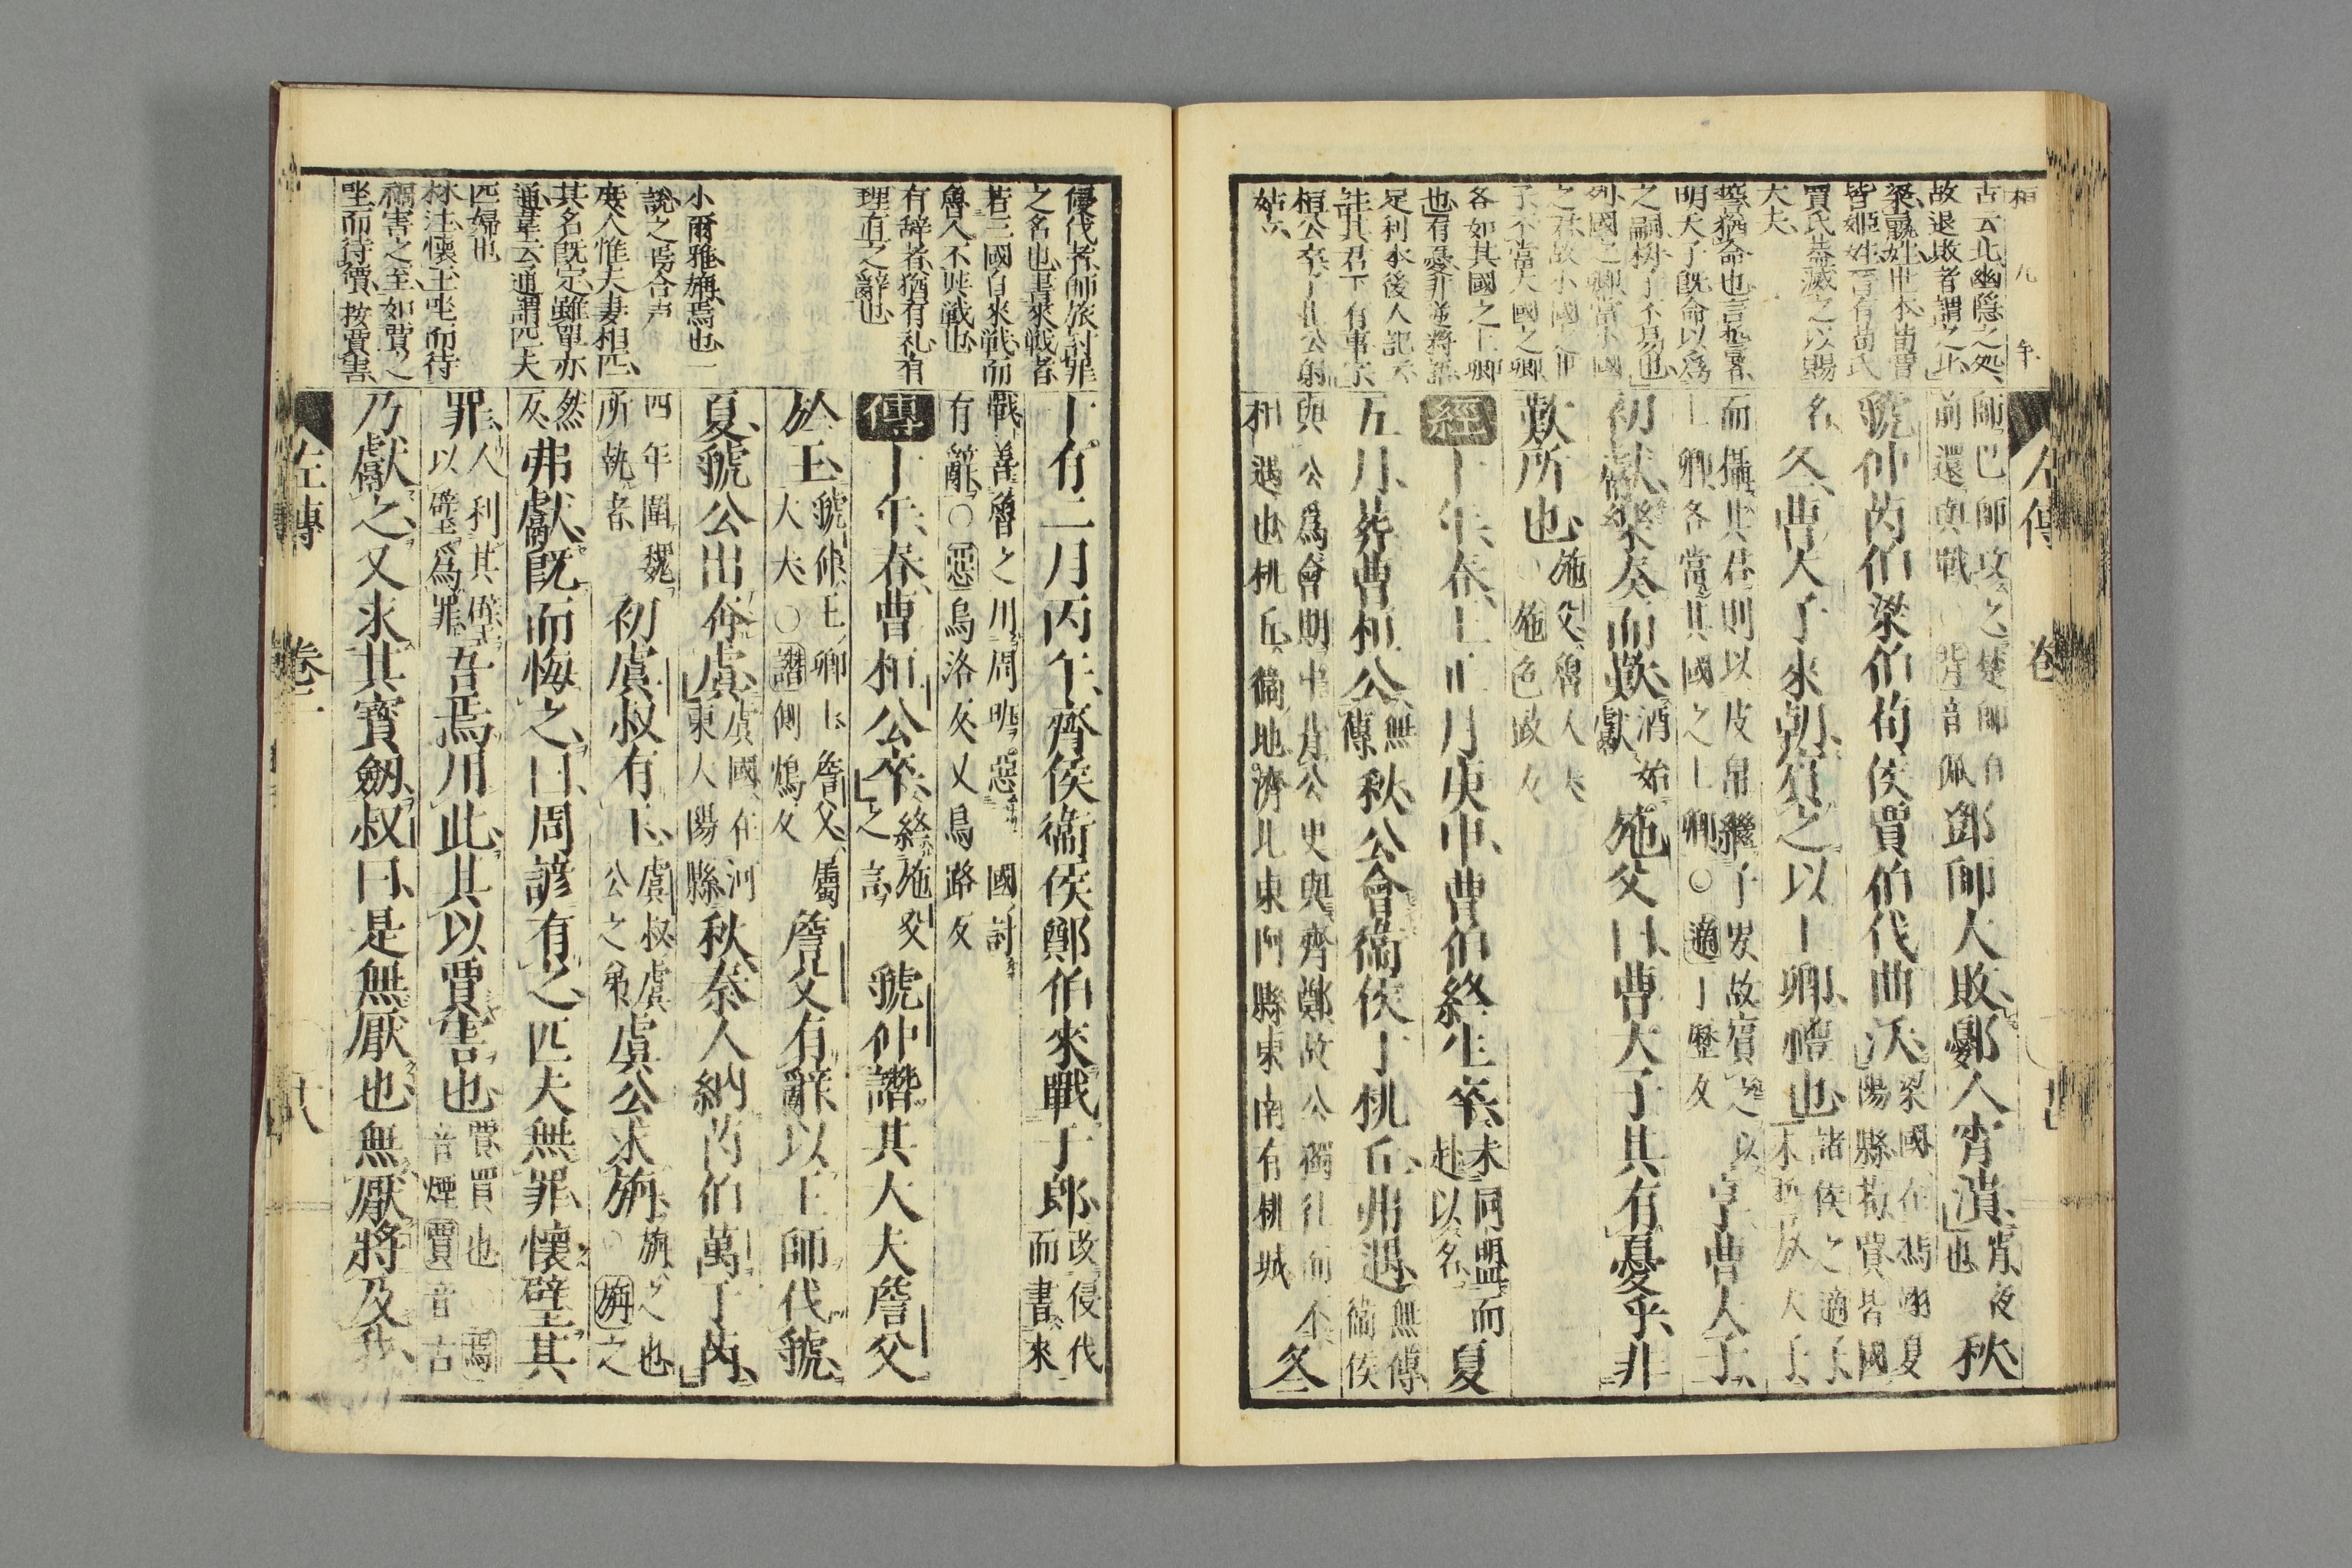 左傳 卷
桓 九 年
古云北幽隱之処
故退敗者謂之北
梁嬴姓世本荀賈
皆姬姓晉有荀氏
賈氏蓋滅之以賜
大夫
誓猶命也言誓者
明天子既命以爲
之嗣樹子不易也
列國之卿當小國
之君故小國之君
子不當大國之卿
各如其國之上卿
也有憂非逆將誣
足利本後人記云
註其君下有事字
桓公卒子莊公射
姑立
師巴師攻之楚師自
前還與戰 背音佩
鄧師大敗鄾人宵潰
宵夜
也
秋
虢仲芮伯梁伯荀侯賈伯伐曲沃
梁國在馮翊夏
陽縣荀賈皆國
名
冬曹大子來朝賓之以上卿禮也
諸侯之適子
未誓於天子
而攝其君則以皮帛繼子男故賓之以
上卿各當其國之上卿○適丁歷反
享曹大子
初獻樂奏而歎
酒始
獻
施父曰曹大子其有憂乎非
歎所也
施父魯大夫
○施色豉反
經十年春王正月庚申曹伯終生卒
未同盟而
赴以名
夏
五月葬曹桓公
無
傳
秋公會衛侯于桃丘弗遇
無傳
衛侯
與公爲會期中背公更與齊鄭故公獨往而不
相遇也桃丘衛地濟北東阿縣東南有桃城
冬
侵伐者師旅討罪
之名也書來戰者
若三國自來戰而
魯人不與戰也
有辞者猶有礼有
理直之辭也
小爾雅旃焉也一
說之焉合声
庶人惟夫妻相匹
其名既定雖單亦
通韋云通謂匹夫
匹婦也
林注懷玉坐而待
禍害之至如賈之
坐而待價按賈害
十有二月丙午齊侯衛侯鄭伯來戰于郎
改侵伐
而書來
戰善魯之用周班惡三國討
有辭○惡烏洛反又烏路反
傳十年春曹桓公卒
終施父
之言
虢仲譖其大夫詹父
於王
虢仲王卿士詹父屬
大夫○譖側鴆反
詹父有辭以王師伐虢
夏虢公出奔虞
虞國在河
東大陽縣
秋秦人納芮伯萬于芮
四年圍魏
所執者
初虞叔有玉
虞叔虞
公之弟
虞公求旃
旃之也
○旃之
然
反
弗獻既而悔之曰周諺有之匹夫無罪懷璧其
罪
人利其璧
以璧爲罪
吾焉用此其以賈害也
賈買也○焉
音煙賈音古
乃獻之又求其寶劔叔曰是無厭也無厭將及我
左傳 卷二 十八